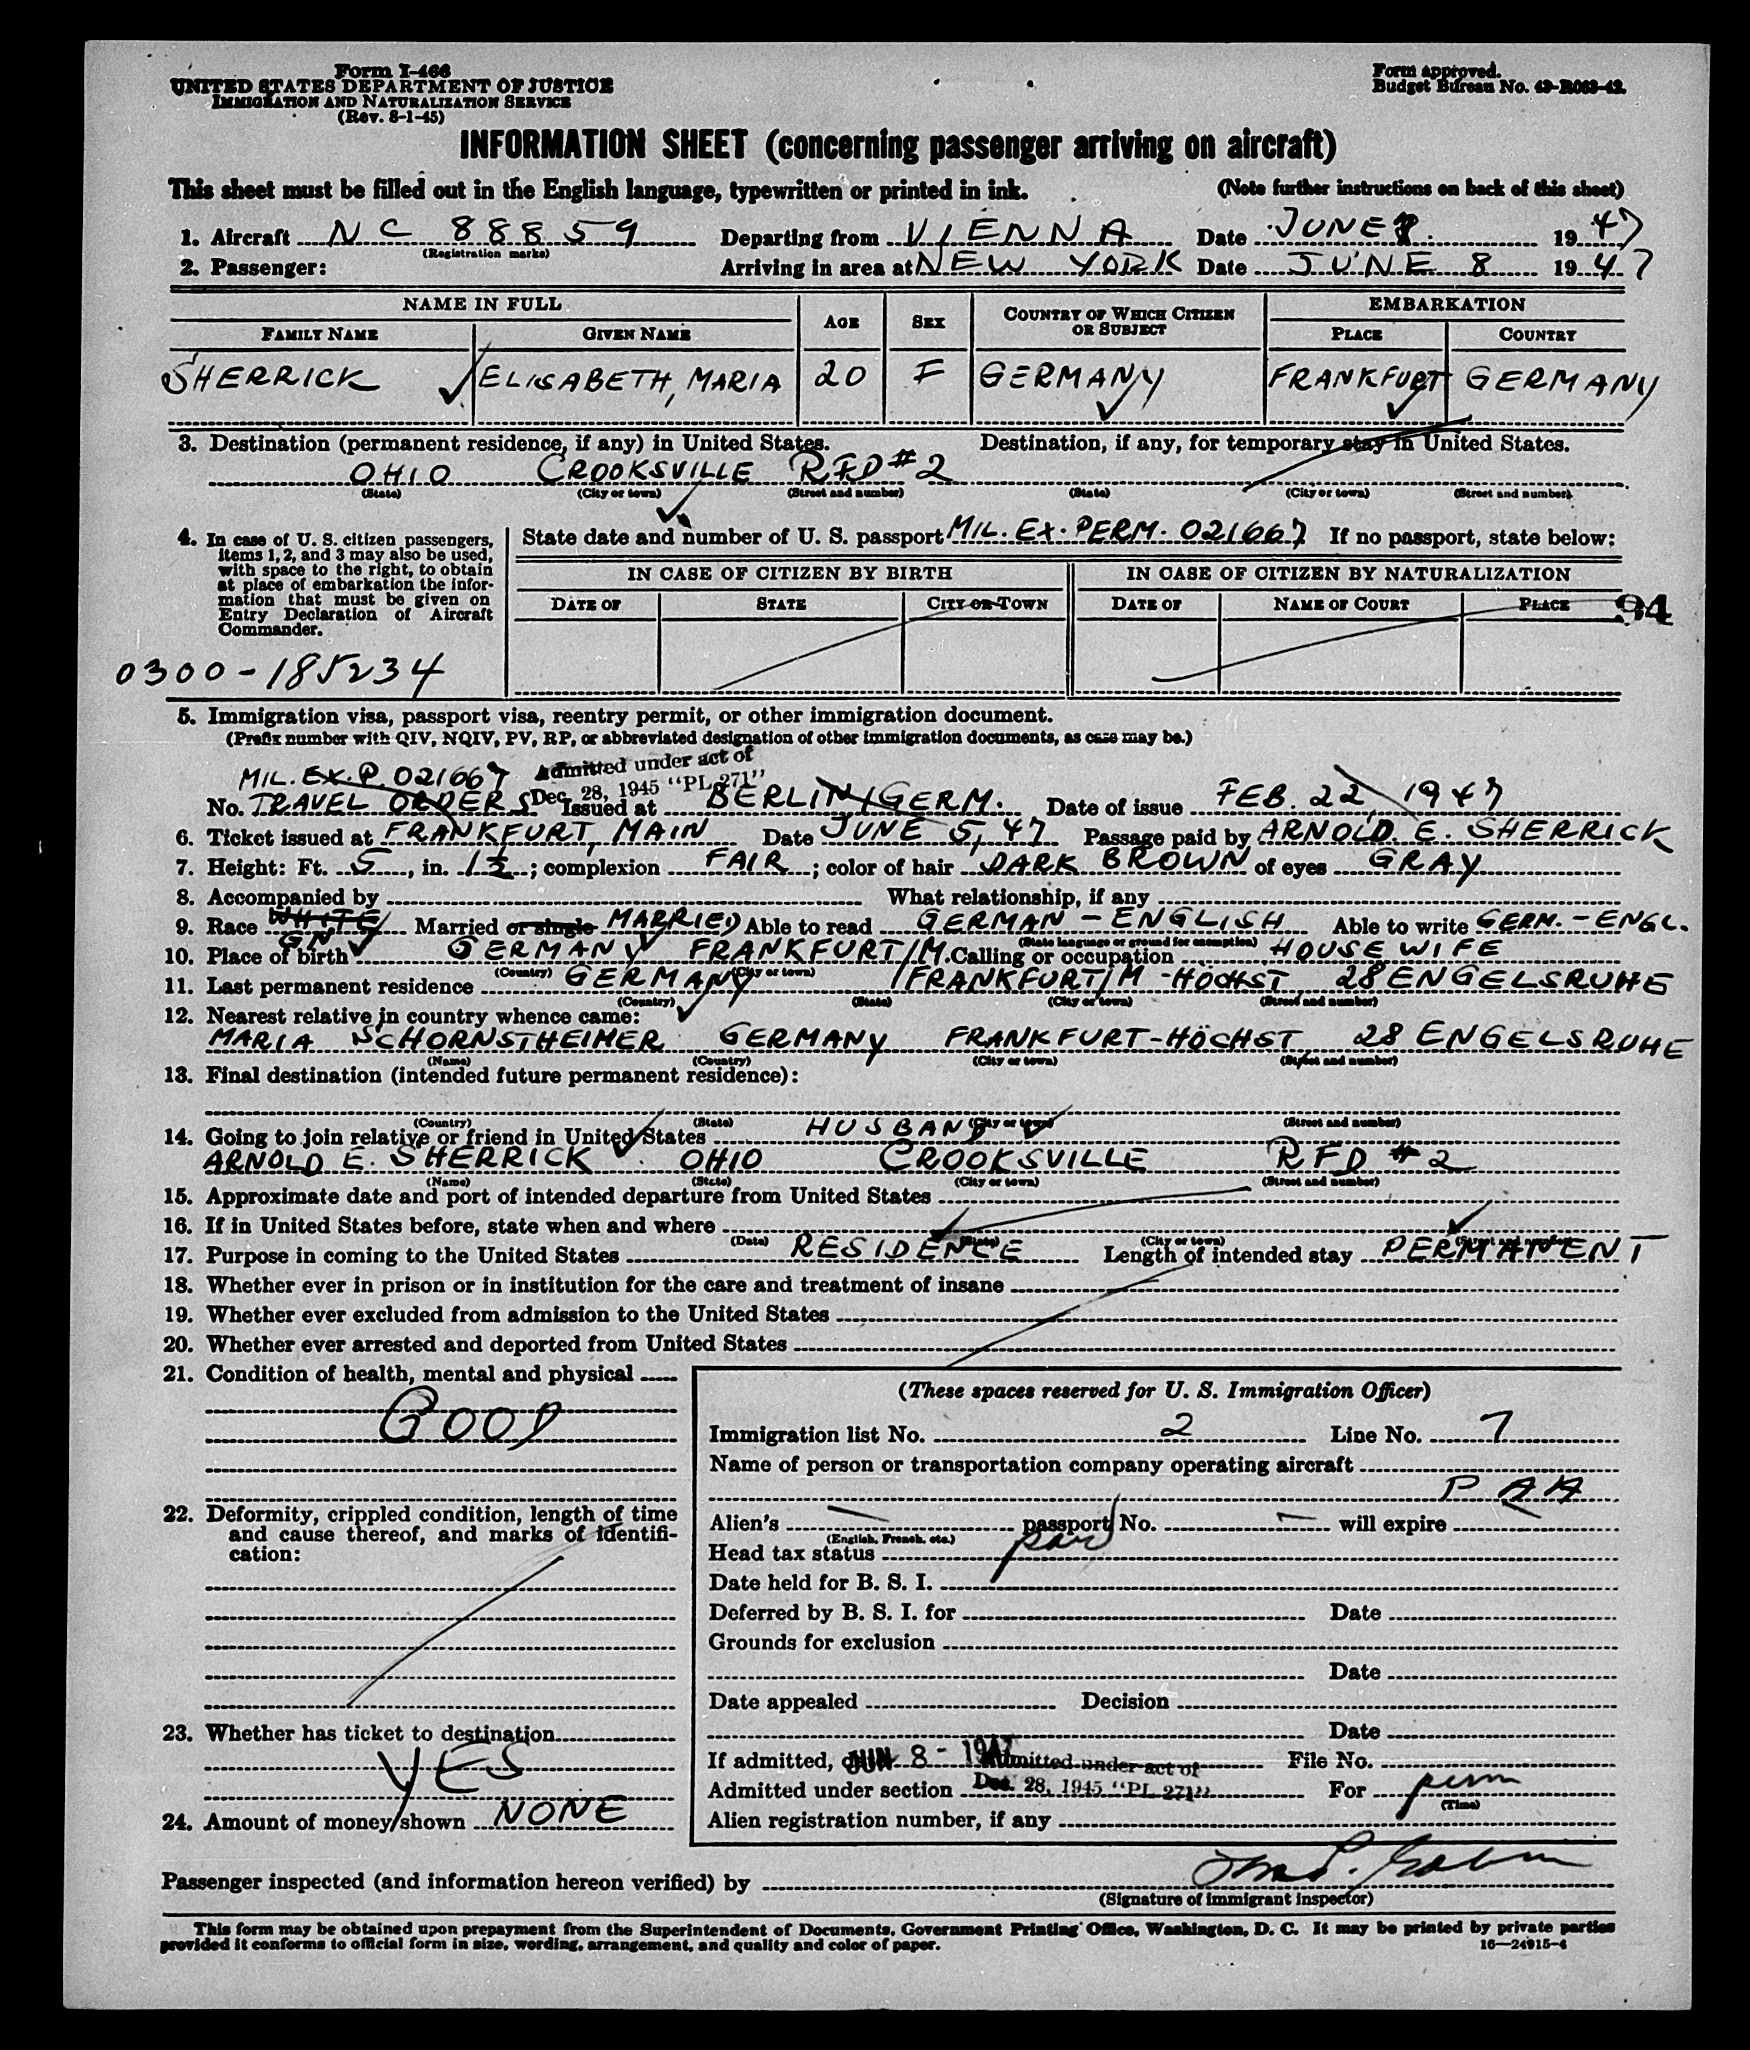 Form I-466
UNITED STATES DEPARTMENT OF JUSTICE
IMMIGRATION AND NATURALIZATION SERVICE
(Rev. 8-1-45)
Form approved.
Budget Bureau No. 43-R063-42.
INFORMATION SHEET (concerning passenger arriving on aircraft)
This sheet must be filled out in the English language, typewritten or printed in ink. (Note further instructions on back of this sheet)
1. Aircraft NC 88859 Departing from VIENNA Date JUNE 1947
(Registration marks)
2. Passenger: Arriving in area at NEW YORK Date JUNE 8 1947
NAME IN FULL AGE SEX COUNTRY OF WHICH CITIZEN OR SUBJECT EMBARKATION
FAMILY NAME GIVEN NAME PLACE COUNTRY
SHERRICK ELISABETH, MARIA 20 F GERMANY FRANKFURT GERMANY
3. Destination (permanent residence, if any) in United States. Destination, if any, for temporary stay in United States.
OHIO CROOKSVILLE RFD #2
(State) (City or town) (Street and number) (State) (City or town) (Street and number)
4. In case of U. S. citizen passengers, items 1, 2, and 3 may also be used, with space to the right, to obtain at place of embarkation the information that must be given on Entry Declaration of Aircraft Commander.
State date and number of U. S. passport MIL. EX. PERM. 021667 If no passport, state below:
IN CASE OF CITIZEN BY BIRTH IN CASE OF CITIZEN BY NATURALIZATION
DATE OF STATE CITY OR TOWN DATE OF NAME OF COURT PLACE 94
0300-185234
5. Immigration visa, passport visa, reentry permit, or other immigration document.
(Prefix number with QIV, NQIV, PV, RP, or abbreviated designation of other immigration documents, as case may be.)
MIL. EX. P. 021667 Admitted under act of
Dec. 28, 1945 "PL 271"
No. TRAVEL ORDERS Issued at BERLIN/GERM. Date of issue FEB. 22, 1947
6. Ticket issued at FRANKFURT, MAIN Date JUNE 5, 47 Passage paid by ARNOLD E. SHERRICK
7. Height: Ft. 5, in. 1½; complexion FAIR; color of hair DARK BROWN of eyes GRAY
8. Accompanied by What relationship, if any
9. Race WHITE GN Married or single MARRIED Able to read GERMAN - ENGLISH Able to write GERM. - ENGL.
(State language or ground for exemption)
10. Place of birth GERMANY FRANKFURT/M. Calling or occupation HOUSEWIFE
(Country) (City or town)
11. Last permanent residence GERMANY FRANKFURT/M - HÖCHST 28 ENGELSRUHE
(Country) (State) (City or town) (Street and number)
12. Nearest relative in country whence came:
MARIA SCHORNSTHEIMER GERMANY FRANKFURT-HÖCHST 28 ENGELSRUHE
(Name) (Country) (City or town) (Street and number)
13. Final destination (intended future permanent residence):
(Country) (State) (City or town) (Street and number)
14. Going to join relative or friend in United States HUSBAND
ARNOLD E. SHERRICK OHIO CROOKSVILLE RFD #2
(Name) (State) (City or town) (Street and number)
15. Approximate date and port of intended departure from United States
16. If in United States before, state when and where
(Date) (State) (City or town) (Street and number)
17. Purpose in coming to the United States RESIDENCE Length of intended stay PERMANENT
18. Whether ever in prison or in institution for the care and treatment of insane
19. Whether ever excluded from admission to the United States
20. Whether ever arrested and deported from United States
21. Condition of health, mental and physical
GOOD
22. Deformity, crippled condition, length of time and cause thereof, and marks of identification:
23. Whether has ticket to destination
YES
24. Amount of money shown NONE
(These spaces reserved for U. S. Immigration Officer)
Immigration list No. 2 Line No. 7
Name of person or transportation company operating aircraft
PAA
Alien's passport No. will expire
(English, French, etc.)
Head tax status
Date held for B. S. I.
Deferred by B. S. I. for Date
Grounds for exclusion
Date
Date appealed Decision
Date
If admitted, JUN 8 - 1947 Admitted under act of File No.
Admitted under section Dec. 28, 1945 "PL 271" For perm
(Time)
Alien registration number, if any
Passenger inspected (and information hereon verified) by
(Signature of immigrant inspector)
This form may be obtained upon prepayment from the Superintendent of Documents, Government Printing Office, Washington, D. C. It may be printed by private parties
provided it conforms to official form in size, wording, arrangement, and quality and color of paper. 16—24915-4